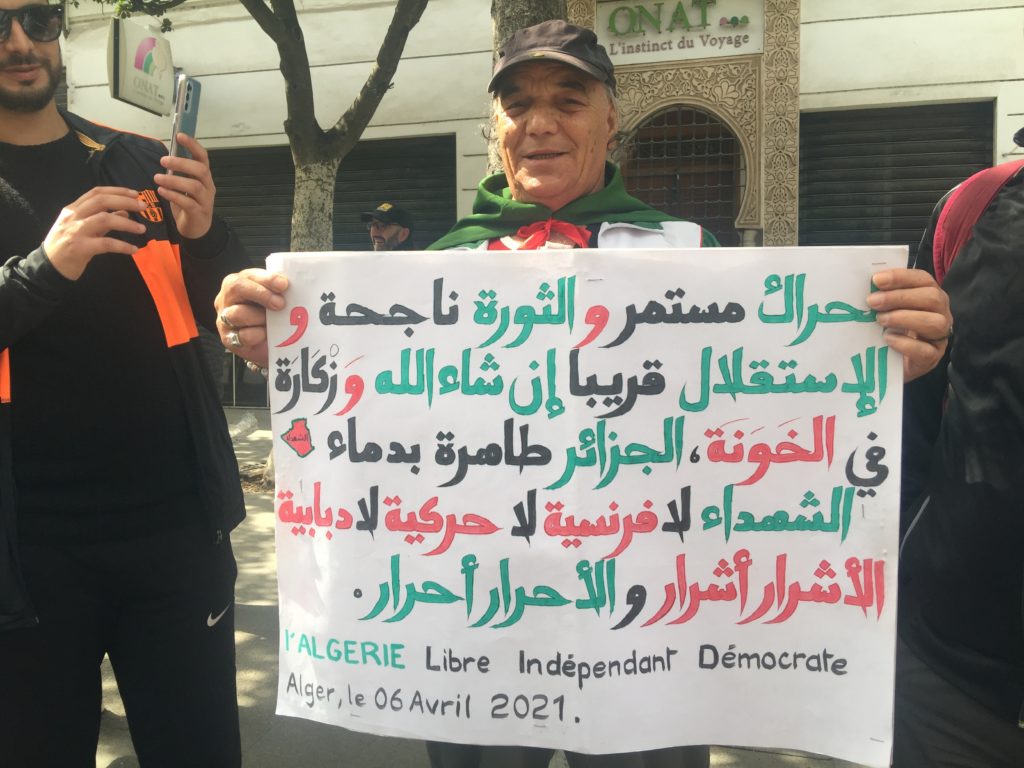 ONAT
L'instinct du Voyage
ONAT
لحراك مستمر و الثورة ناجحة و
الإستقلال قريبا إن شاء الله وَزْكَارَة
في الخَوَنَة، الجزائر طاهرة بدماء
الشهداء
الشهداء لا فرنسية لا حركية لا دبابية
الأشرار أشرار و الأحرار أحرار.
l'ALGERIE Libre Indépendant Démocrate
Alger, le 06 Avril 2021.